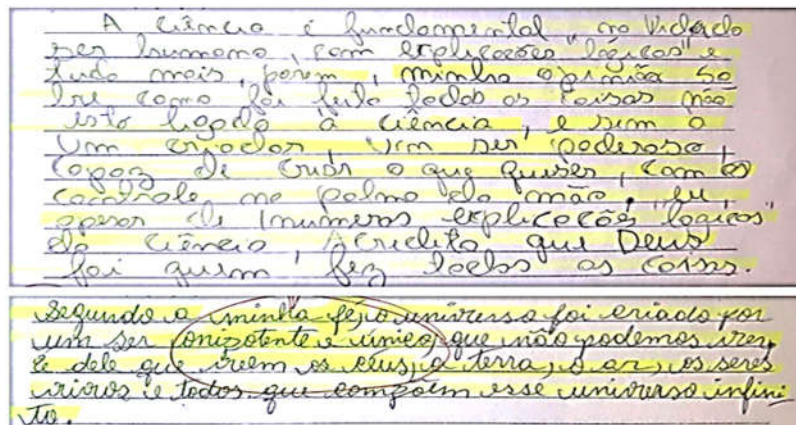 A ciência é fundamental "na vida do
ser humano, com explicações lógicas" e
tudo mais, porém, minha opinião so
bre como foi feito todas as coisas não
esta ligado à ciência, e sim a
um criador, um ser poderoso,
capaz de criar o que quiser, com o
controle na palma da mão, eu,
apesar de inumeras explicações "lógicas"
da ciência, Acredito que Deus
foi quem fez todas as coisas.
segundo a minha fé, o universo foi criado por
um ser onipotente e único, que não podemos ver,
e dele que vieem os céus, a terra, o ar, os seres
vivos e todos que compõem esse universo infini
to.